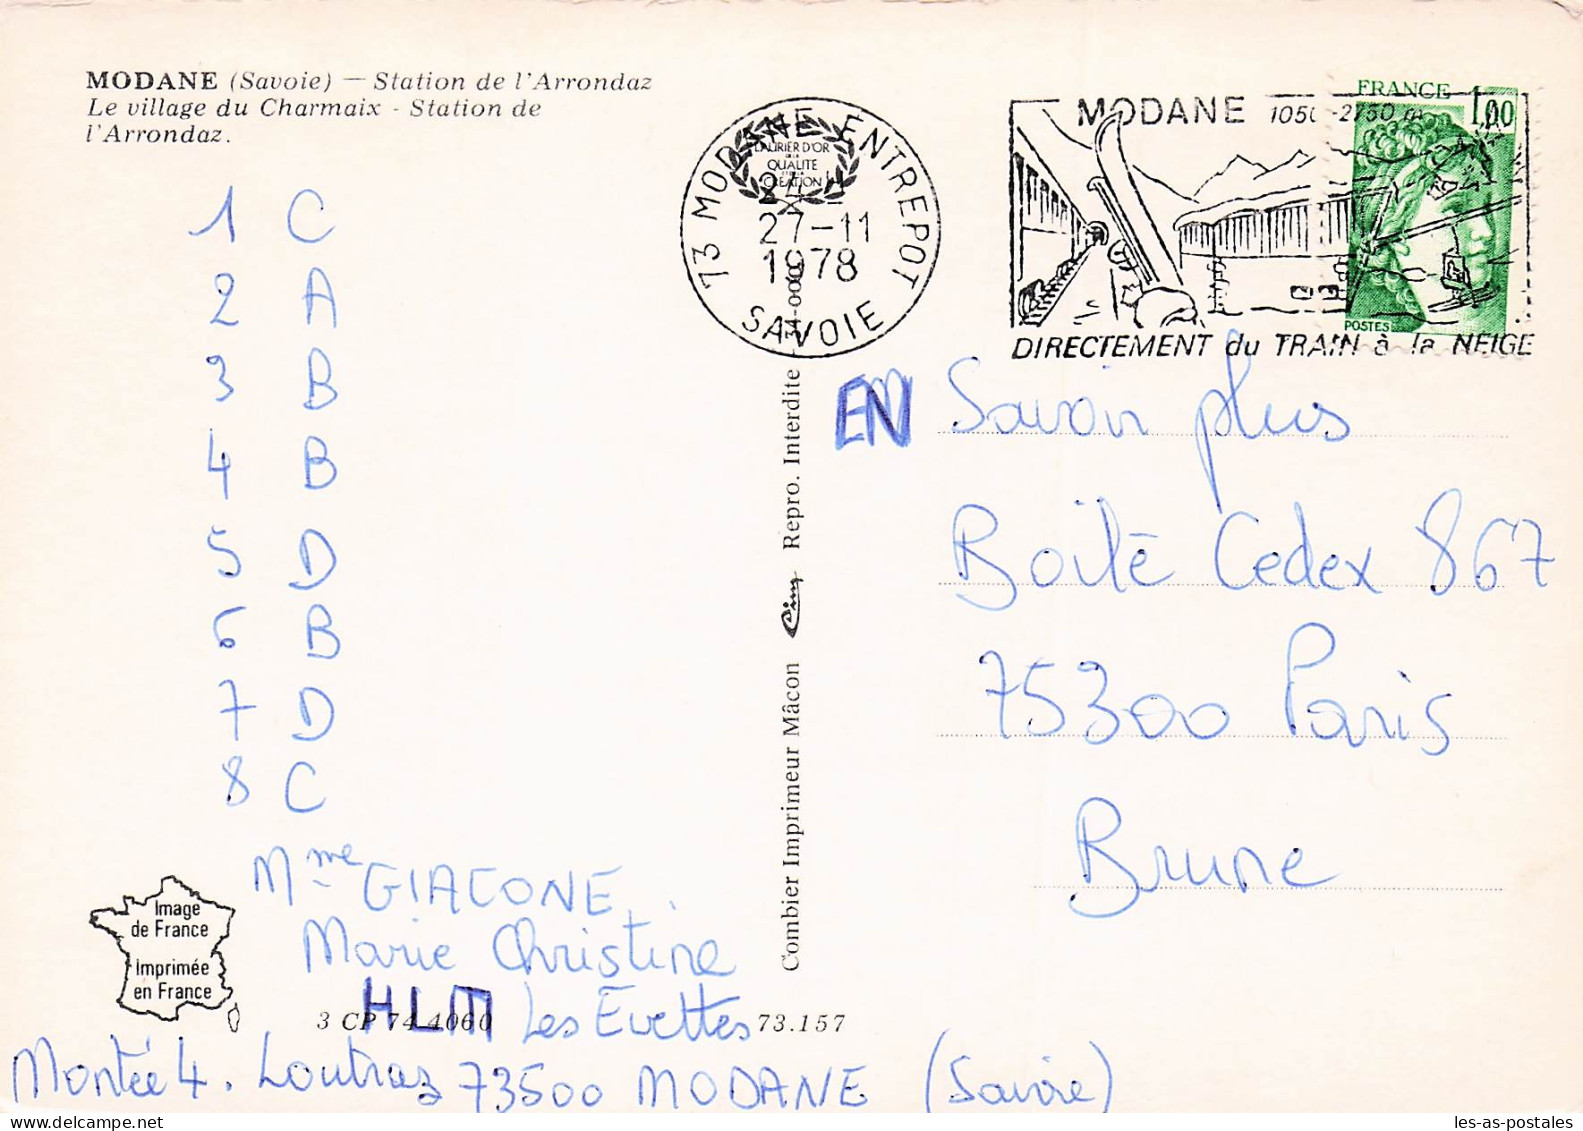 MODANE (Savoie) — Station de l'Arrondaz
Le village du Charmaix - Station de
l'Arrondaz.
1 C
2 A
3 B
4 B
5 D
6 B
7 D
8 C
Mme GIACONE
Marie Christine
HLM Les Evettes
Montée 4. Loutraz 73500 MODANE (Savoie)
Image
de France
Imprimée
en France
3 CP 74 4060
73.157
Combier Imprimeur Mâcon Cim Repro. Interdite
LAURIER D'OR
DE LA
QUALITE
CREATION
73 MODANE ENTREPOT
27-11
1978
SAVOIE
MODANE 1050-2750 m
DIRECTEMENT du TRAIN à la NEIGE
FRANCE
1,00
POSTES
EN Savoir plus
Boîte Cedex 867
75300 Paris
Brune
les-as-postales